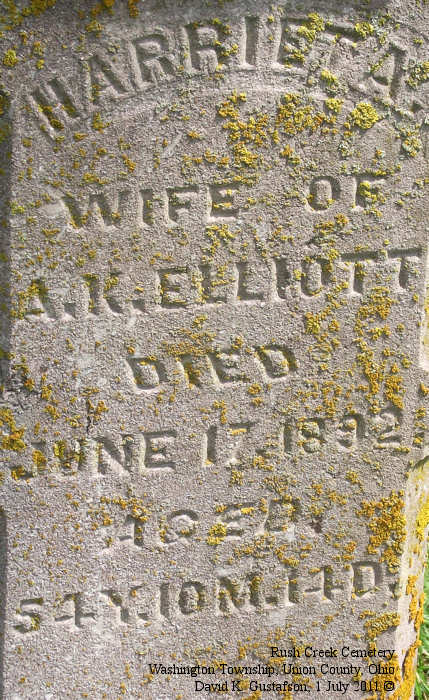 HARRIET A.
WIFE OF
A.K. ELLIOTT
DIED
JUNE 17, 1892
AGED
54 Y. 10 M. 14 D.
Rush Creek Cemetery
Washington Township, Union County, Ohio
David K. Gustafson, 1 July 2011 ©